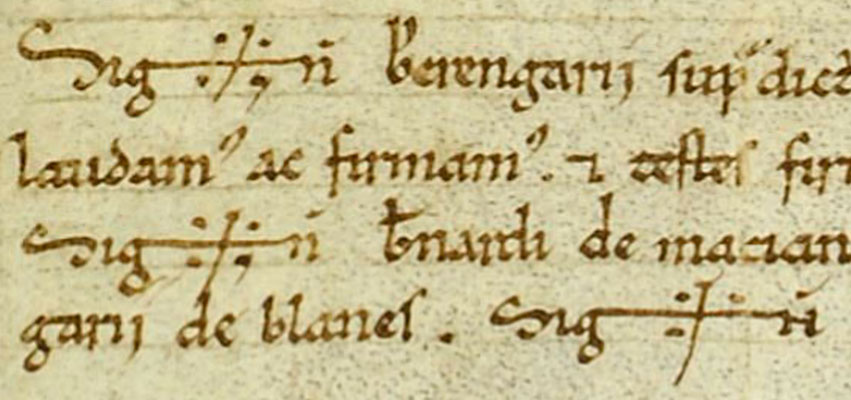 Sig+ñ b̄erengarii sup᷑dict
laudamꝰ ac firmamꝰ. ⁊ testes fir
Sig+ñ b̄nardi de macian
garii de blanes. Sig+ñ